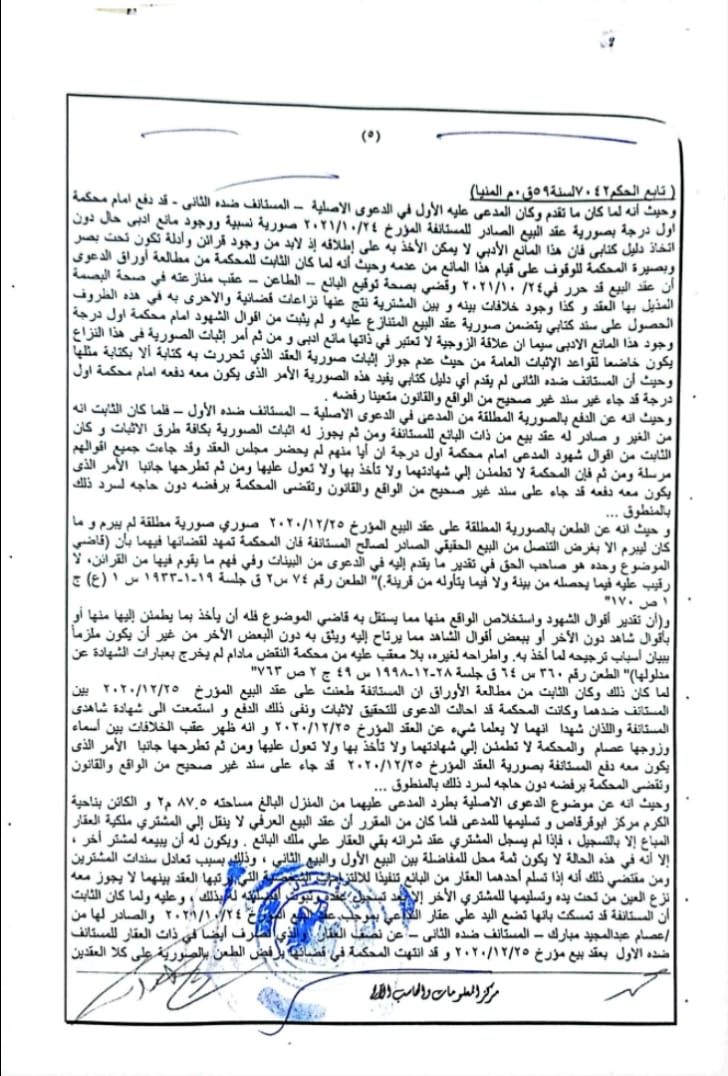 (٥)
( تابع الحكم ٧٠٤٢ لسنة ٥٩ ق.م المنيا)
وحيث أنه لما كان ما تقدم وكان المدعى عليه الأول في الدعوى الاصلية – المستانف ضده الثانى - قد دفع امام محكمة
اول درجة بصورية عقد البيع الصادر للمستانفة المؤرخ ٢٠٢١/١٠/٢٤ صورية نسبية ووجود مانع ادبى حال دون
اتخاذ دليل كتابى فان هذا المانع الأدبي لا يمكن الأخذ به على إطلاقه إذ لابد من وجود قرائن وأدلة تكون تحت بصر
وبصيرة المحكمة للوقوف على قيام هذا المانع من عدمه وحيث أنه لما كان الثابت للمحكمة من مطالعة أوراق الدعوى
أن عقد البيع قد حرر في٢٤/ ٢٠٢١/١٠ وقضي بصحة توقيع البائع – الطاعن – عقب منازعته في صحة البصمة
المذيل بها العقد و كذا وجود خلافات بينه و بين المشترية نتج عنها نزاعات قضائية والاحرى به في هذه الظروف
الحصول على سند كتابي يتضمن صورية عقد البيع المتنازع عليه و لم يثبت من اقوال الشهود امام محكمة اول درجة
وجود هذا المانع الادبى سيما ان علاقة الزوجية لا تعتبر في ذاتها مانع ادبى و من ثم أمر إثبات الصورية فى هذا النزاع
يكون خاضعا لقواعد الإثبات العامة من حيث عدم جواز إثبات صورية العقد الذي تحررت به كتابة ألا بكتابة مثلها
وحيث أن المستانف ضده الثانى لم يقدم أي دليل كتابي يفيد هذه الصورية الأمر الذى يكون معه دفعه امام محكمة اول
درجة قد جاء غير سند غير صحيح من الواقع والقانون متعينا رفضه .
وحيث انه عن الدفع بالصورية المطلقة من المدعى في الدعوى الاصلية – المستانف ضده الأول – فلما كان الثابت انه
من الغير و صادر له عقد بيع من ذات البائع للمستانفة ومن ثم يجوز له اثبات الصورية بكافة طرق الاثبات و كان
الثابت من اقوال شهود المدعى امام محكمة اول درجة ان أيا منهم لم يحضر مجلس العقد وقد جاءت جميع اقوالهم
مرسلة ومن ثم فإن المحكمة لا تطمئن إلي شهادتهما ولا تأخذ بها ولا تعول عليها ومن ثم تطرحها جانبا الأمر الذى
يكون معه دفعه قد جاء على سند غير صحيح من الواقع والقانون وتقضى المحكمة برفضه دون حاجه لسرد ذلك
بالمنطوق ...
و حيث انه عن الطعن بالصورية المطلقة على عقد البيع المؤرخ ٢٠٢٠/١٢/٢٥ صوري صورية مطلقة لم يبرم و ما
كان ليبرم الا بغرض التنصل من البيع الحقيقي الصادر لصالح المستانفة فان المحكمة تمهد لقضائها فيهما بأن (قاضي
الموضوع وحده هو صاحب الحق في تقدير ما يقدم إليه في الدعوى من البينات وفي فهم ما يقوم فيها من القرائن، لا
رقيب عليه فيما يحصله من بينة ولا فيما يتأوله من قرينة.)" الطعن رقم ٧٤ س٢ ق جلسة ١٩-١-١٩٣٣ س ١ (ع) ج
١ ص ١٧٠"
و(أن تقدير أقوال الشهود واستخلاص الواقع منها مما يستقل به قاضي الموضوع فله أن يأخذ بما يطمئن إليها منها أو
بأقوال شاهد دون الأخر أو ببعض أقوال الشاهد مما يرتاح إليه ويثق به دون البعض الأخر من غير أن يكون ملزماً
ببيان أسباب ترجيحه لما أخذ به. واطراحه لغيره، بلا معقب عليه من محكمة النقض مادام لم يخرج بعبارات الشهادة عن
مدلولها)" الطعن رقم ٣٦٠ س ٦٤ ق جلسة ٢٨-١٢-١٩٩٨ س ٤٩ ج ٢ ص ٧٦٣"
لما كان ذلك وكان الثابت من مطالعة الأوراق ان المستانفة طعنت على عقد البيع المؤرخ ٢٠٢٠/١٢/٢٥ بين
المستانف ضدهما وكانت المحكمة قد احالت الدعوى للتحقيق لاثبات ونفى ذلك الدفع و استمعت الى شهادة شاهدى
المستانفة واللذان شهدا انهما لا يعلما شيء عن العقد المؤرخ ٢٠٢٠/١٢/٢٥ و انه ظهر عقب الخلافات بين أسماء
وزوجها عصام والمحكمة لا تطمئن إلي شهادتهما ولا تأخذ بها ولا تعول عليها ومن ثم تطرحها جانبا الأمر الذى
يكون معه دفع المستانفة بصورية العقد المؤرخ ٢٠٢٠/١٢/٢٥ قد جاء على سند غير صحيح من الواقع والقانون
وتقضى المحكمة برفضه دون حاجه لسرد ذلك بالمنطوق ...
وحيث انه عن موضوع الدعوى الاصلية بطرد المدعى عليهما من المنزل البالغ مساحته ٨٧.٥ م٢ و الكائن بناحية
الكرم مركز ابوقرقاص و تسليمها للمدعى فلما كان من المقرر أن عقد البيع العرفي لا ينقل إلي المشتري ملكية العقار
المباع إلا بالتسجيل ، فإذا لم يسجل المشتري عقد شرائه بقي العقار علي ملك البائع . ويكون له أن يبيعه لمشتر أخر ،
إلا أنه في هذه الحالة لا يكون ثمة محل للمفاضلة بين البيع الأول والبيع الثاني ، وذلك بسبب تعادل سندات المشترين
ومن مقتضي ذلك أنه إذا تسلم أحدهما العقار من البائع تنفيذا للالتزامات الشخصية التي رتبها العقد بينهما لا يجوز معه
نزع العين من تحت يده وتسليمها للمشتري الأخر إلا بعد تسجيل عقده وثبوت أفضليته له بذلك ، وعليه ولما كان الثابت
أن المستانفة قد تمسكت بانها تضع اليد علي عقار التداعي بموجب عقد البيع المؤرخ ٢٠٢١/١٠/٢٤ والصادر لها من
/عصام عبدالمجيد مبارك – المستانف ضده الثانى – عن نصف العقار والذي تصرف أيضا في ذات العقار للمستانف
ضده الاول بعقد بيع مؤرخ ٢٠٢٠/١٢/٢٥ و قد انتهت المحكمة في قضائها برفض الطعن بالصورية على كلا العقدين
مركز المعلومات والحاسب الآلى